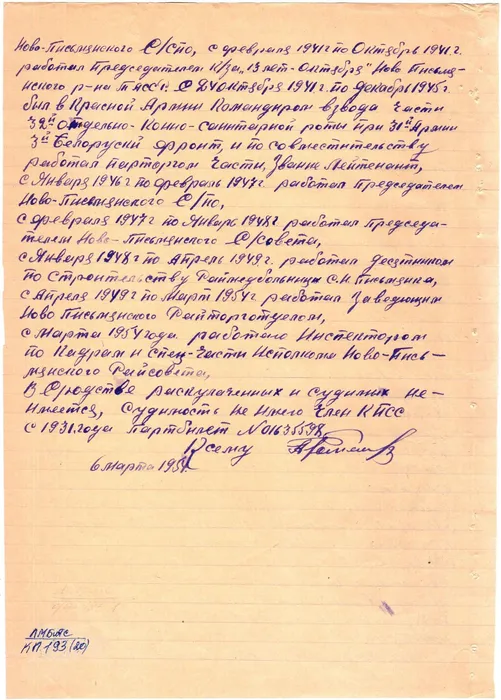 Ново-Письмянского С/спо, с февраля 1941г по Октябрь 1941.г.
работал Председателем К/за „13 лет-Октября" Ново Письмян-
ского р-на ТАССР. С 24 Октября 1941г. по декабрь 1945г.
был в Красной Армии Командиром взвода части
32й Отдельно-Конно-санитарной роты при 31й Армии
3й Белоруский фронт, и по совместительству
работал парторгом части, Звание Лейтенант,
с Января 1946г по февраль 1947г. работал Председателем
Ново-Письмянского С/по,
с февраля 1947г по Январь 1948г работал Председа-
телем Ново-Письмянского С/совета,
с Января 1948г по Апрель 1949г. работал десятником
по Строительству Раймедбольницы С.Н. Письмянка,
с Апреля 1949г по Март 1954г работал Заведующим
Ново Письмянского Райторготделом,
с Марта 1954 года работаю Инспектором
по Кадрам и Спец-Части Исполкома Ново-Пись-
мянского Райсовета,
В Сродстве раскулаченных и судимых не-
имеется, Судимость не имею Член КПСС
с 1931.года Партбилет №01635598.
К сему
6 марта 195
ЛМБ
КП 193 (20)